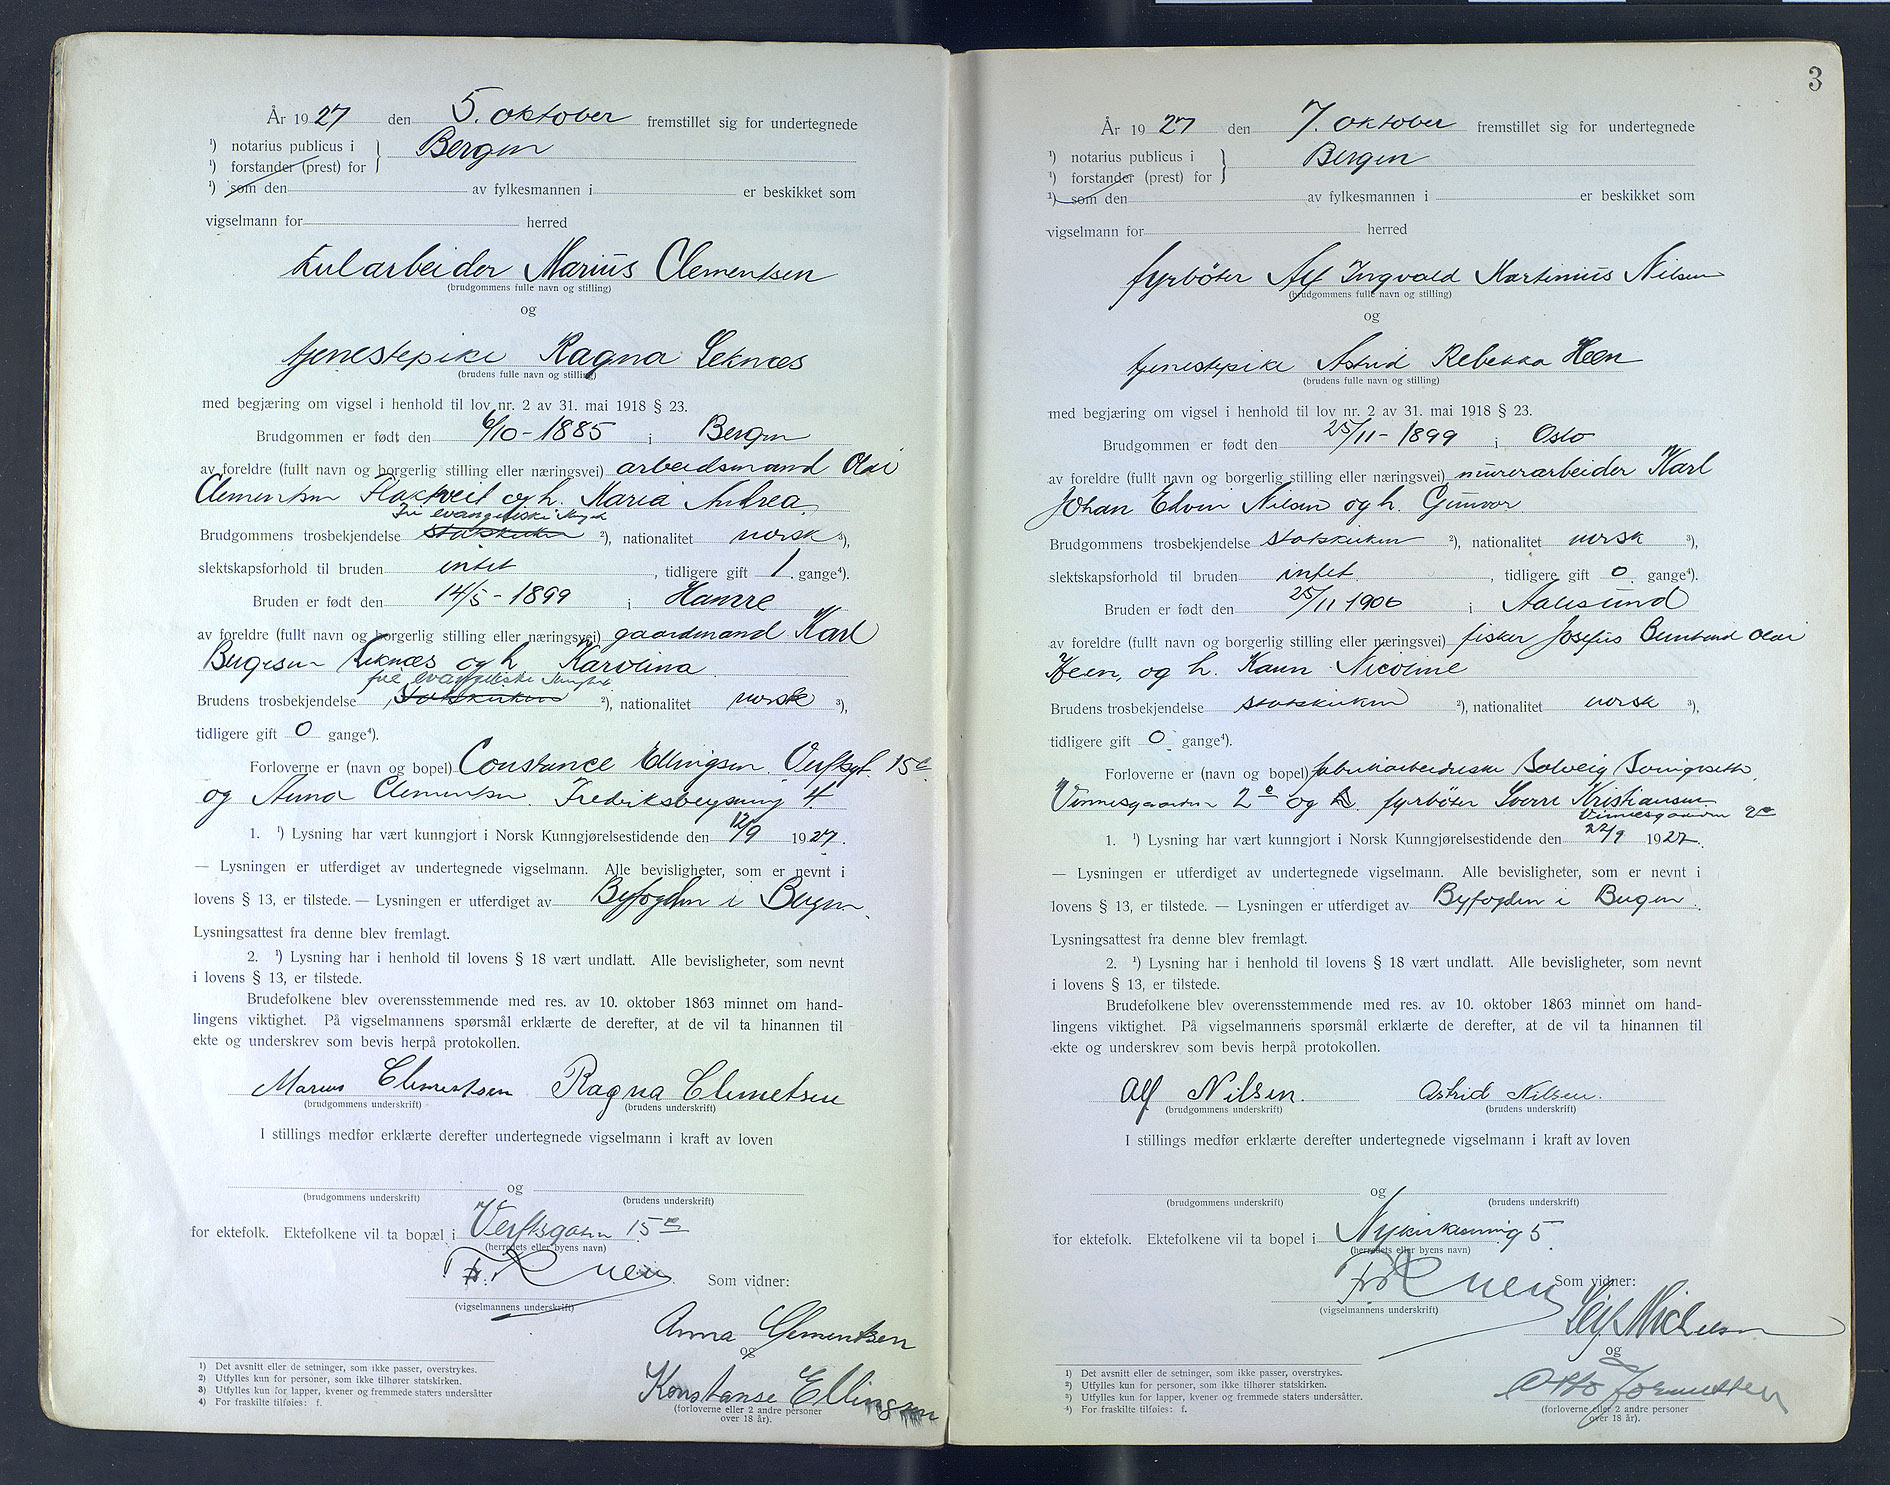 År 1927 den 5. oktober fremstillet sig for undertegnede
¹) notarius publicus i } Bergen
¹) forstander (prest) for
¹) som den av fylkesmannen i er beskikket som
vigselmann for herred
Marius Clementsen
(brudgommens fulle navn og stilling)
og
tjenestepike Ragna Leknæs
(brudens fulle navn og stilling)
med begjæring om vigsel i henhold til lov nr. 2 av 31. mai 1918 § 23.
Brudgommen er født den 6/10 - 1885 i Bergen
av foreldre (fullt navn og borgerlig stilling eller næringsvei) arbeidsmand Olai
Clementsen Flaktveit og h. Maria Andrea
Fri evangeliske
Brudgommens trosbekjendelse statskirken ²), nationalitet norsk ³),
slektskapsforhold til bruden intet, tidligere gift 1. gange⁴).
Bruden er født den 14/5 - 1899 i Hamre
av foreldre (fullt navn og borgerlig stilling eller næringsvei) gaardmand Karl
Birgesen Leknæs og h. Karolina
frie evangeliske
Brudens trosbekjendelse Statskirken ²), nationalitet norsk ³),
tidligere gift 0 gange⁴).
Forloverne er (navn og bopel) Constance Ellingsen. Verftsgt. 15c
og Anna Clementsen. 4.
1. ¹) Lysning har vært kunngjort i Norsk Kunngjørelsestidende den 12/9 1927.
— Lysningen er utferdiget av undertegnede vigselmann. Alle bevisligheter, som er nevnt i
lovens § 13, er tilstede. — Lysningen er utferdiget av Byfogden i Bergen.
Lysningsattest fra denne blev fremlagt.
2. ¹) Lysning har i henhold til lovens § 18 vært undlatt. Alle bevisligheter, som nevnt
i lovens § 13, er tilstede.
Brudefolkene blev overensstemmende med res. av 10. oktober 1863 minnet om hand-
lingens viktighet. På vigselmannens spørsmål erklærte de derefter, at de vil ta hinannen til
ekte og underskrev som bevis herpå protokollen.
Marius Clementsen Ragna Clemetsen
(brudgommens underskrift) (brudens underskrift)
I stillings medfør erklærte derefter undertegnede vigselmann i kraft av loven
og
(brudgommens underskrift) (brudens underskrift)
for ektefolk. Ektefolkene vil ta bopæl i Verftsgaten 15c
(herredets eller byens navn)
Som vidner:
(vigselmannens underskrift)
Anna Clementsen
og
Konstanse Ellingsen
(forloverne eller 2 andre personer
over 18 år).
¹) Det avsnitt eller de setninger, som ikke passer, overstrykes.
²) Utfylles kun for personer, som ikke tilhører statskirken.
³) Utfylles kun for lapper, kvener og fremmede staters undersåtter
⁴) For fraskilte tilføies: f.
3
År 1927 den 7. oktober fremstillet sig for undertegnede
¹) notarius publicus i } Bergen
¹) forstander (prest) for
¹) som den av fylkesmannen i er beskikket som
vigselmann for herred
fyrbøter Alf Ingvald Martinius Nilsen
(brudgommens fulle navn og stilling)
og
tjenestepike Astrid Rebekka Heen
(brudens fulle navn og stilling)
med begjæring om vigsel i henhold til lov nr. 2 av 31. mai 1918 § 23.
Brudgommen er født den 25/11 - 1899 i Oslo
av foreldre (fullt navn og borgerlig stilling eller næringsvei) murerarbeider Karl
Johan Edvin Nilsen og h. Gunvor
Brudgommens trosbekjendelse statskirken ²), nationalitet norsk ³),
slektskapsforhold til bruden intet, tidligere gift 0. gange⁴).
Bruden er født den 25/11 1906 i Aalesund
av foreldre (fullt navn og borgerlig stilling eller næringsvei) fisker Josefus Olai
Heen, og h. Karen Nicoline
Brudens trosbekjendelse statskirken ²), nationalitet norsk ³),
tidligere gift 0. gange⁴).
Forloverne er (navn og bopel) fabrikarbeiderske Solveig
Vinnesgaarden 2c og fyrbøter Sverre Kristiansen
Vinnesgaarden 2c
1. ¹) Lysning har vært kunngjort i Norsk Kunngjørelsestidende den 22/9 1927.
— Lysningen er utferdiget av undertegnede vigselmann. Alle bevisligheter, som er nevnt i
lovens § 13, er tilstede. — Lysningen er utferdiget av Byfogden i Bergen.
Lysningsattest fra denne blev fremlagt.
2. ¹) Lysning har i henhold til lovens § 18 vært undlatt. Alle bevisligheter, som nevnt
i lovens § 13, er tilstede.
Brudefolkene blev overensstemmende med res. av 10. oktober 1863 minnet om hand-
lingens viktighet. På vigselmannens spørsmål erklærte de derefter, at de vil ta hinannen til
ekte og underskrev som bevis herpå protokollen.
Alf Nilsen. Astrid Nilsen.
(brudgommens underskrift) (brudens underskrift)
I stillings medfør erklærte derefter undertegnede vigselmann i kraft av loven
og
(brudgommens underskrift) (brudens underskrift)
for ektefolk. Ektefolkene vil ta bopel i Nykirkesmug 5
(herredets eller byens navn)
Som vidner:
(vigselmannens underskrift)
Leif Michelsen
og
Otto
(forloverne eller 2 andre personer
over 18 år).
¹) Det avsnitt eller de setninger, som ikke passer, overstrykes.
²) Utfylles kun for personer, som ikke tilhører statskirken.
³) Utfylles kun for lapper, kvener og fremmede staters undersåtter.
⁴) For fraskilte tilføies: f.